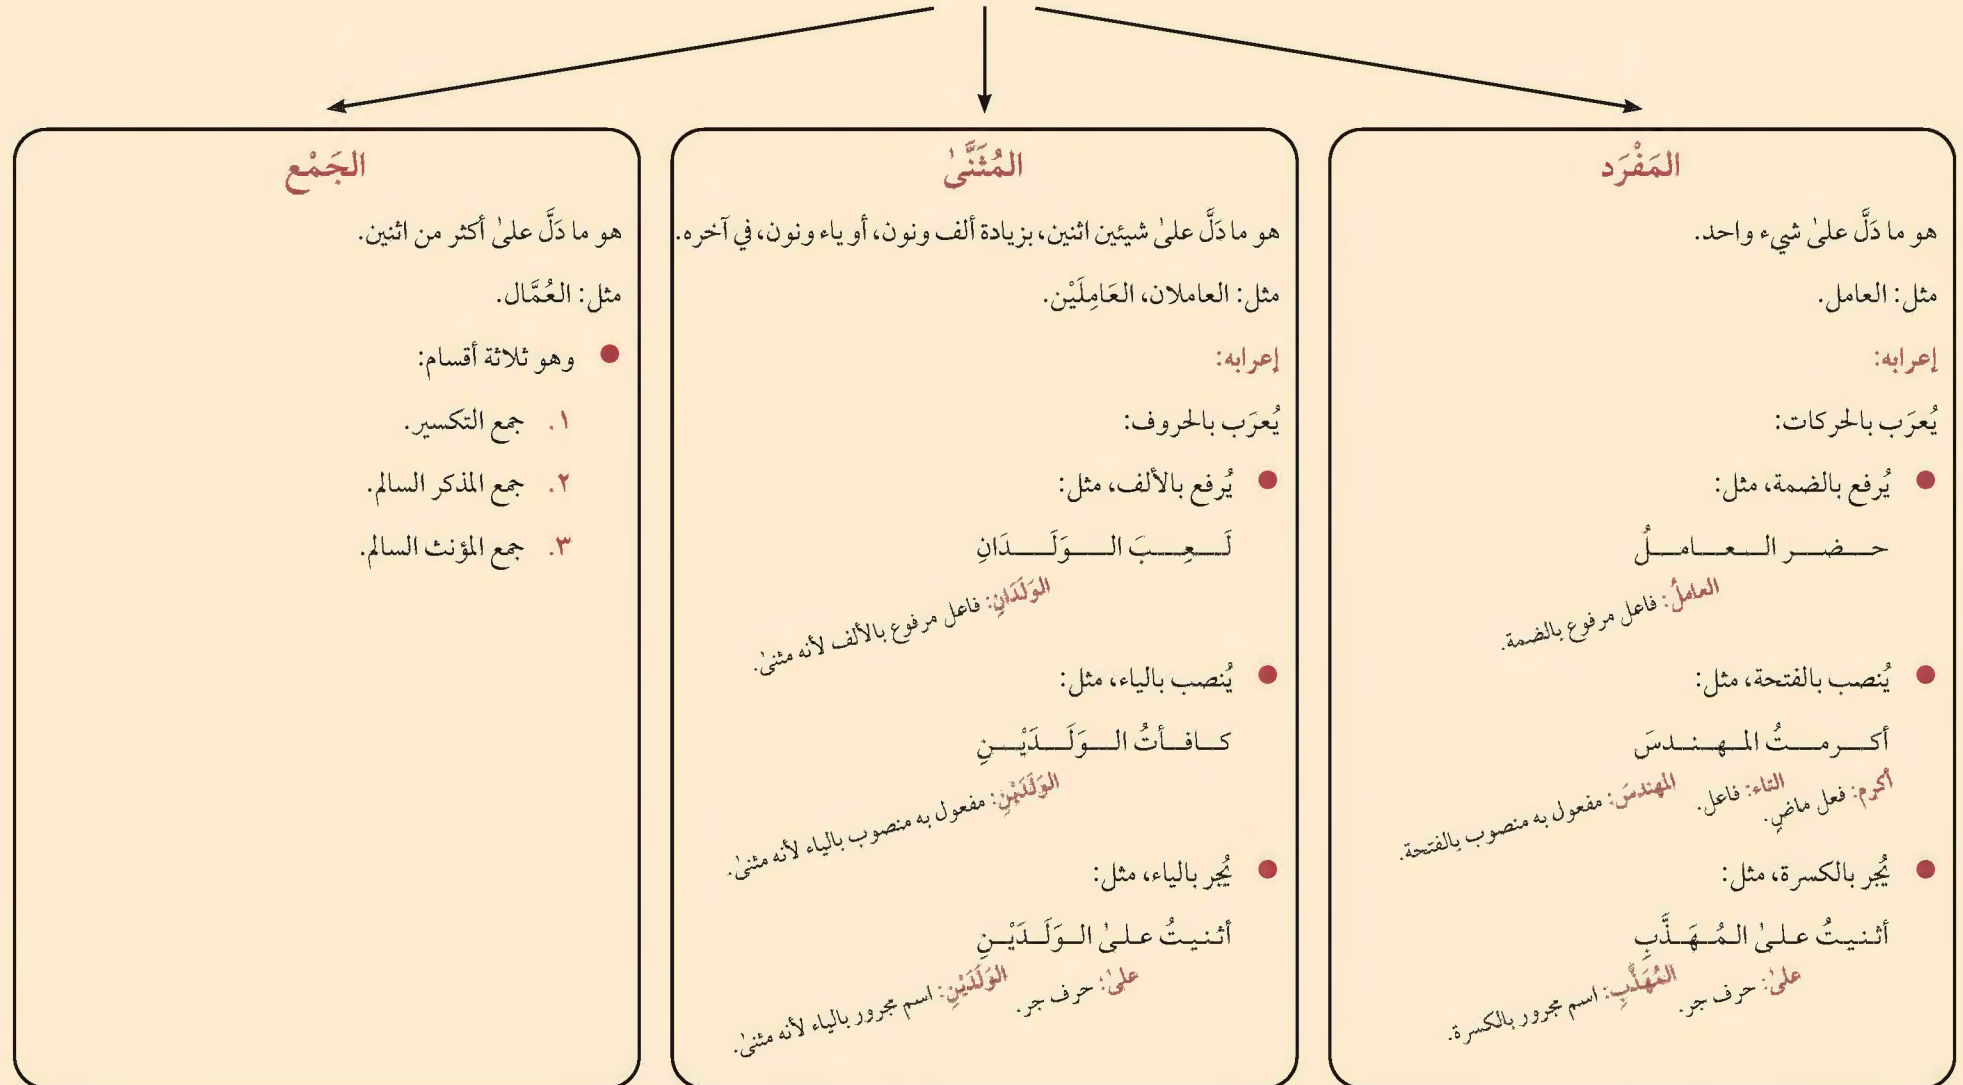 المَفْرَد
هو ما دَلَّ علىٰ شيء واحد.
مثل: العامل.
إعرابه:
يُعرَب بالحركات:
● يُرفع بالضمة، مثل:
حـــضـــر الـــعـــامـــلُ
العاملُ: فاعل مرفوع بالضمة.
● يُنصب بالفتحة، مثل:
أكـــرمـــتُ المـهـنـدسَ
أكرم: فعل ماضٍ. التاء: فاعل. المهندسَ: مفعول به منصوب بالفتحة.
● يُجر بالكسرة، مثل:
أثنيتُ علىٰ المُـهَـذَّبِ
علىٰ: حرف جر. المُهَذَّبِ: اسم مجرور بالكسرة.
المُثَنَّىٰ
هو ما دَلَّ علىٰ شيئين اثنين، بزيادة ألف ونون، أو ياء ونون، في آخره.
مثل: العاملان، العَامِلَيْن.
إعرابه:
يُعرَب بالحروف:
● يُرفع بالألف، مثل:
لَـــعِـــبَ الـــوَلَـــدَانِ
الوَلَدَانِ: فاعل مرفوع بالألف لأنه مثنىٰ.
● يُنصب بالياء، مثل:
كـــافـــأتُ الـــوَلَـــدَيْـــنِ
الوَلَدَيْنِ: مفعول به منصوب بالياء لأنه مثنىٰ.
● يُجر بالياء، مثل:
أثنيتُ علىٰ الـوَلَـدَيْـنِ
علىٰ: حرف جر. الوَلَدَيْنِ: اسم مجرور بالياء لأنه مثنىٰ.
الجَمْع
هو ما دَلَّ علىٰ أكثر من اثنين.
مثل: العُمَّال.
● وهو ثلاثة أقسام:
١. جمع التكسير.
٢. جمع المذكر السالم.
٣. جمع المؤنث السالم.